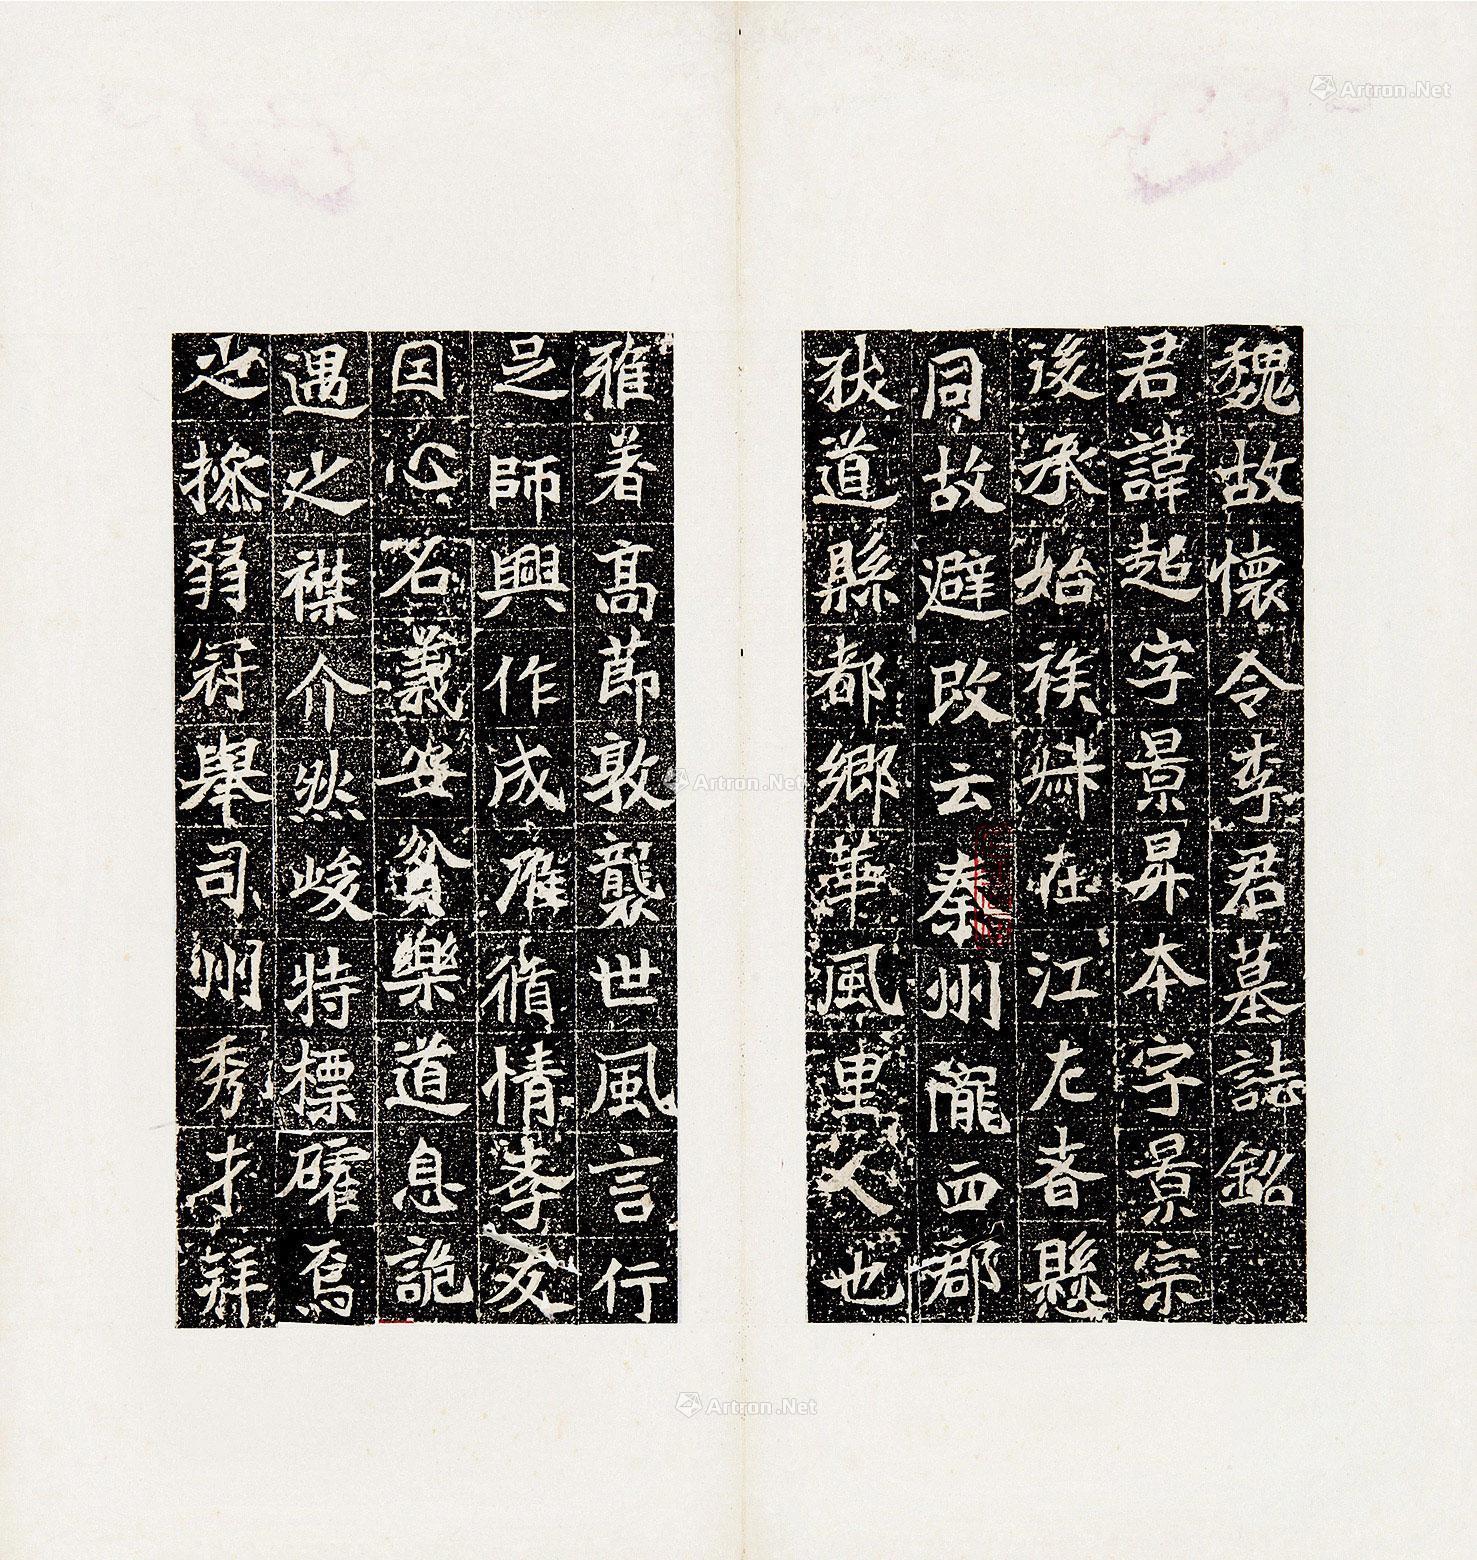 魏故懷令李君墓誌銘
君諱起字景昇本字景宗
後承始族叔在江左者懸
同故避改云秦州隴西郡
狄道縣都鄉華風里人也
雅著高節敦襲世風言行
足師興作成准循情孝友
因心名義安貧樂道息詭
遇之襟介然峻特標確焉
之操弱冠舉司州秀才拜
Artron.Net
Artron.Net
Artron.Net